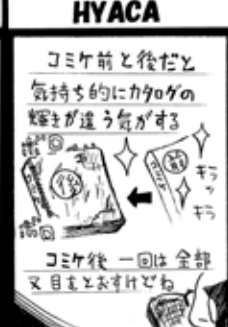 HYACA
コミケ前と後だと
気持ち的にカタログの
輝きが違う気がする
前
後
キラッ
キラ
コミケ後 一回は 全部
又目をとおすけどね